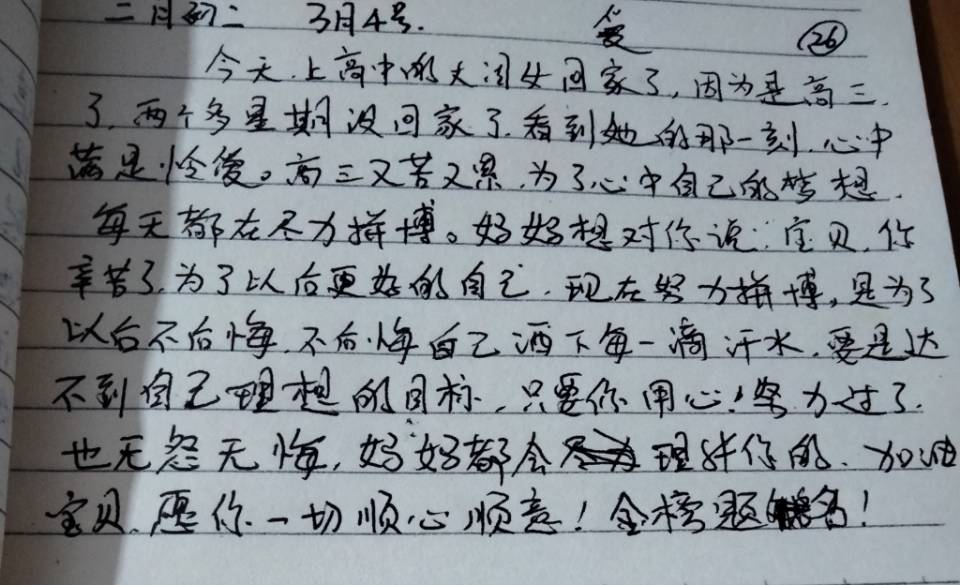 二月初二 3月4号. 爱 26
今天.上高中的大闺女回家了,因为是高三.
了.两个多星期没回家了.看到她的那一刻.心中
满是怜爱。高三又苦又累.为了心中自己的梦想.
每天都在尽力拼博。妈妈想对你说:宝贝.你
辛苦了.为了以后更好的自己.现在努力拼博,是为了
以后不后悔.不后悔自己洒下每一滴汗水.要是达
不到自己理想的目标.只要你用心!努力过了.
也无怨无悔,妈妈都会理解你的.加油
宝贝.愿你.一切顺心顺意!金榜题名!